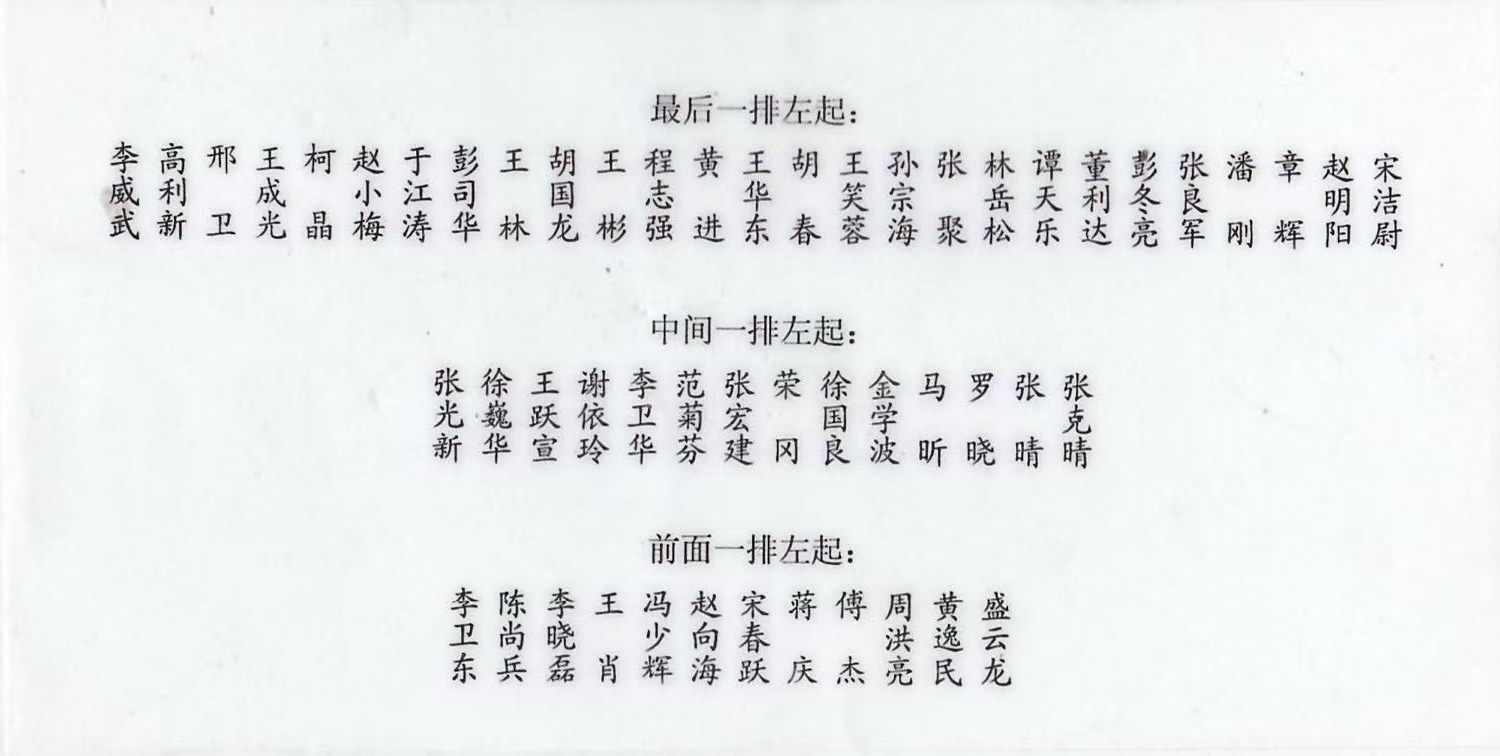 最后一排左起：
李威武 高利新 邢卫 王成光 柯晶 赵小梅 于江涛 彭司华 王林 胡国龙 王彬 程志强 黄进 王华东 胡春 王笑蓉 孙宗海 张聚 林岳松 谭天乐 董利达 彭冬亮 张良军 潘刚 章辉 赵明阳 宋洁尉
中间一排左起：
张光新 徐巍华 王跃宣 谢依玲 李卫华 范菊芬 张宏建 荣冈 徐国良 金学波 马昕 罗晓 张晴 张克晴
前面一排左起：
李卫东 陈尚兵 李晓磊 王肖 冯少辉 赵向海 宋春跃 蒋庆 傅杰 周洪亮 黄逸民 盛云龙